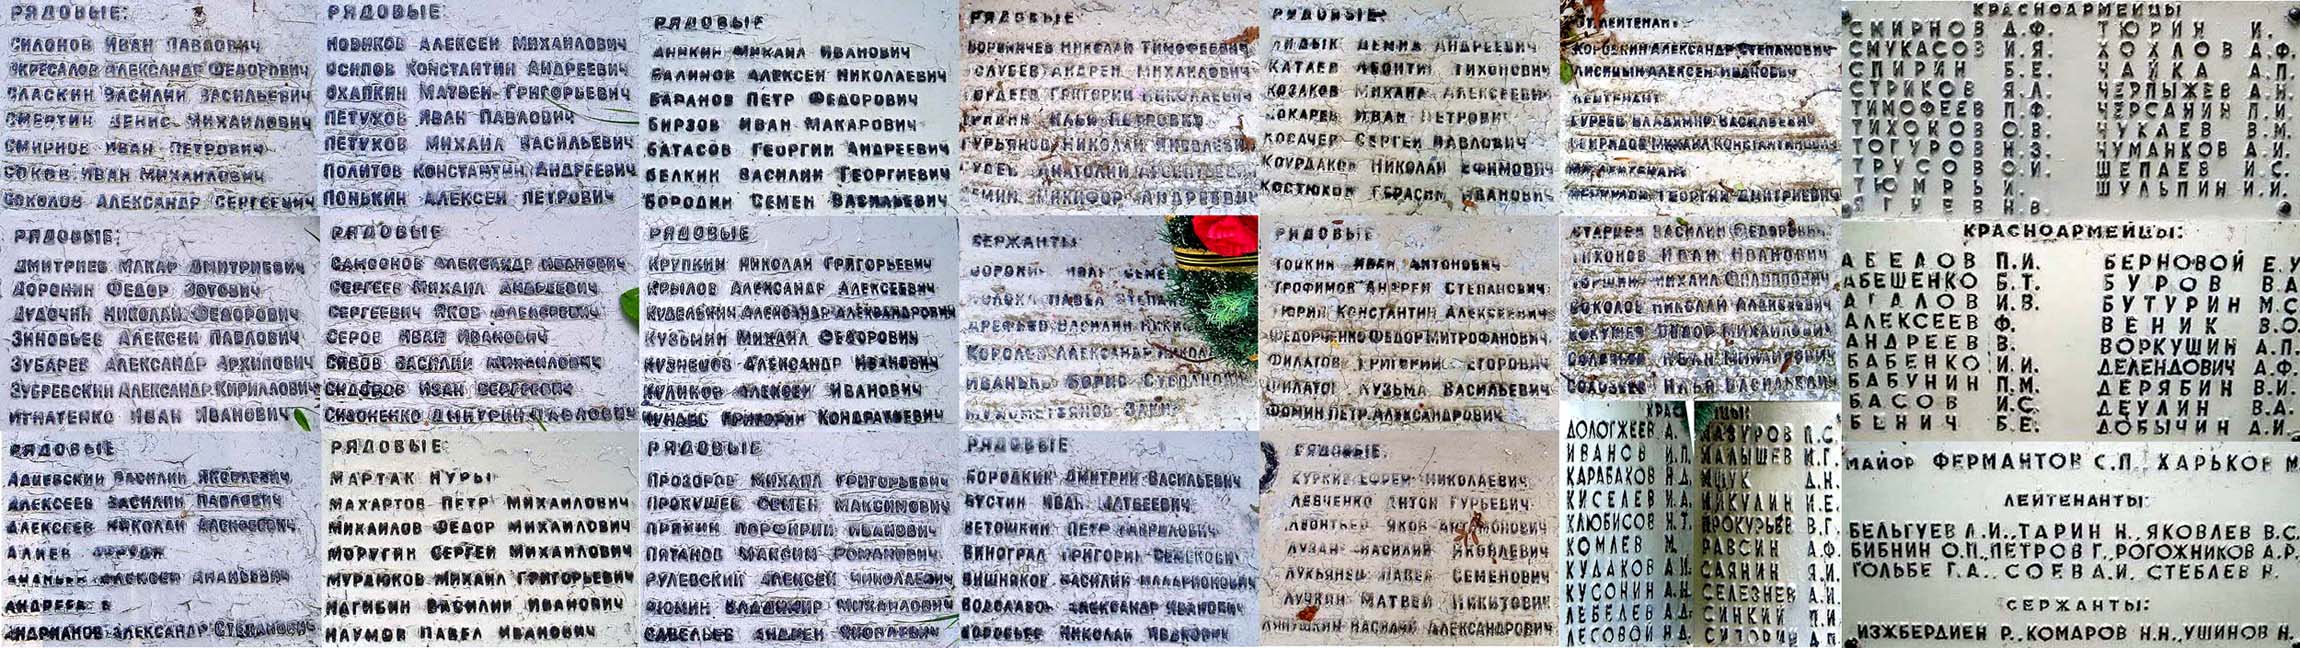 РЯДОВЫЕ:
СИЛОНОВ ИВАН ПАВЛОВИЧ
АЛЕКСАНДР ФЕДОРОВИЧ
СЛАСКИН ВАСИЛИЙ ВАСИЛЬЕВИЧ
СМЕРТИН ДЕНИС МИХАЙЛОВИЧ
СМИРНОВ ИВАН ПЕТРОВИЧ
СОКОВ ИВАН МИХАЙЛОВИЧ
СОКОЛОВ АЛЕКСАНДР СЕРГЕЕВИЧ
РЯДОВЫЕ
НОВИКОВ АЛЕКСЕЙ МИХАЙЛОВИЧ
ОСИПОВ КОНСТАНТИН АНДРЕЕВИЧ
ОХАПКИН МАТВЕЙ ГРИГОРЬЕВИЧ
ПЕТУХОВ ИВАН ПАВЛОВИЧ
ПЕТУХОВ МИХАИЛ ВАСИЛЬЕВИЧ
ПОЛИТОВ КОНСТАНТИН АНДРЕЕВИЧ
ПОНЬКИН АЛЕКСЕЙ ПЕТРОВИЧ
РЯДОВЫЕ
АНИКИН МИХАИЛ ИВАНОВИЧ
БАЛИНОВ АЛЕКСЕЙ НИКОЛАЕВИЧ
БАРАНОВ ПЕТР ФЕДОРОВИЧ
БИРЗОВ ИВАН МАКАРОВИЧ
БАТАСОВ ГЕОРГИЙ АНДРЕЕВИЧ
БЕЛКИН ВАСИЛИЙ ГЕОРГИЕВИЧ
БОРОДИН СЕМЕН ВАСИЛЬЕВИЧ
РЯДОВЫЕ
НИКОЛАЙ ТИМОФЕЕВИЧ
АНДРЕЙ МИХАЙЛОВИЧ
ГОРДЕЕВ ГРИГОРИЙ НИКОЛАЕВИЧ
ИЛЬЯ ПЕТРОВИЧ
ГУРЬЯНОВ НИКОЛАЙ ЯКОВЛЕВИЧ
АНАТОЛИЙ
НИКИФОР АНДРЕЕВИЧ
РЯДОВЫЕ
ДЕМИД АНДРЕЕВИЧ
КАТАЕВ ЛЕОНТИЙ ТИХОНОВИЧ
КОЗАКОВ МИХАИЛ АЛЕКСЕЕВИЧ
КОКАРЕВ ИВАН ПЕТРОВИЧ
КОВАЧЕР СЕРГЕЙ ПАВЛОВИЧ
КОУРДАКОВ НИКОЛАЙ ЕФИМОВИЧ
КОСТЮКОВ ГЕРАСИМ ИВАНОВИЧ
СТ. ЛЕЙТЕНАНТ
КОРОДКИН АЛЕКСАНДР СТЕПАНОВИЧ
ЛИСИЦЫН АЛЕКСЕЙ ИВАНОВИЧ
ЛЕЙТЕНАНТ
ГУРЕЕВ ВЛАДИМИР ВАСИЛЬЕВИЧ
МИХАИЛ КОНСТАНТИНОВИЧ
МЛ. ЛЕЙТЕНАНТ
ГЕОРГИЙ ДМИТРИЕВИЧ
КРАСНОАРМЕЙЦЫ
СМИРНОВ А.Ф. ТЮРИН И.
СМУКАСОВ И.Я. ХОХЛОВ А.Ф.
СПИРИН Б.Е. ЧАЙКА А.П.
СТРИКОВ Я.Л. ЧЕРПЫЖЕВ А.Н.
ТИМОФЕЕВ П.Ф. ЧЕРСАНИН П.И.
ТИХОНОВ О.В. ЧУКАЕВ В.М.
ТОГУРОВ Н.З. ЧУМАНКОВ А.И.
ТРУСОВ О.И. ШЕПАЕВ И.С.
ТЮМРЫ И. ШУЛЬПИН И.И.
ЯГНИЕВ Н.В.
РЯДОВЫЕ:
ДМИТРИЕВ МАКАР ДМИТРИЕВИЧ
ДОРОНИН ФЕДОР ЗОТОВИЧ
ДУДОЧИН НИКОЛАЙ ФЕДОРОВИЧ
ЗИНОВЬЕВ АЛЕКСЕЙ ПАВЛОВИЧ
ЗУБАРЕВ АЛЕКСАНДР АРХИПОВИЧ
ЗУБРЕВСКИЙ АЛЕКСАНДР КИРИЛЛОВИЧ
ИГНАТЕНКО ИВАН ИВАНОВИЧ
РЯДОВЫЕ
САМСОНОВ АЛЕКСАНДР ИВАНОВИЧ
СЕРГЕЕВ МИХАИЛ АНДРЕЕВИЧ
СЕРГЕЕВИЧ ЯКОВ АЛЕКСЕЕВИЧ
СЕРОВ ИВАН ИВАНОВИЧ
ВАСИЛИЙ МИХАЙЛОВИЧ
СИДОРОВ ИВАН СЕРГЕЕВИЧ
СИДОНЕНКО ДМИТРИЙ ПАВЛОВИЧ
РЯДОВЫЕ
КРУПКИН НИКОЛАЙ ГРИГОРЬЕВИЧ
КРЫЛОВ АЛЕКСАНДР АЛЕКСЕЕВИЧ
КУДЕЛЬКИН АЛЕКСАНДР АЛЕКСАНДРОВИЧ
КУЗЬМИН МИХАИЛ ФЕДОРОВИЧ
КУЗНЕЦОВ АЛЕКСАНДР ИВАНОВИЧ
КУЛИКОВ АЛЕКСЕЙ ИВАНОВИЧ
ГРИГОРИЙ КОНДРАТЬЕВИЧ
СЕРЖАНТЫ
СОРОКИН ИВАН
ПАВЕЛ
АРЕФЬЕВ ВАСИЛИЙ
КОРОЛЕВ АЛЕКСАНДР
БОРИС СТЕПАНОВИЧ
РЯДОВЫЕ
ТОПКИН ИВАН АНТОНОВИЧ
ТРОФИМОВ АНДРЕЙ СТЕПАНОВИЧ
ТЮРИН КОНСТАНТИН АЛЕКСЕЕВИЧ
ФЕДОРЧЕНКО ФЕДОР МИТРОФАНОВИЧ
ФИЛАТОВ ГРИГОРИЙ ЕГОРОВИЧ
ФИЛАТОВ КУЗЬМА ВАСИЛЬЕВИЧ
ФОМИН ПЕТР АЛЕКСАНДРОВИЧ
СТАРЦЕВ ВАСИЛИЙ ФЕДОРОВИЧ
ТИХОНОВ ИВАН ИВАНОВИЧ
МИХАИЛ ФИЛИППОВИЧ
СОКОЛОВ НИКОЛАЙ АЛЕКСЕЕВИЧ
ФЕДОР МИХАЙЛОВИЧ
СОЛОВЬЕВ ИВАН МИХАЙЛОВИЧ
СОЛОВЬЕВ ИЛЬЯ ВАСИЛЬЕВИЧ
КРАСНОАРМЕЙЦЫ:
АБЕЛОВ П.И. БЕРНОВОЙ Е.У
АБЕШЕНКО Б.Т. БУРОВ В.А
АГАЛОВ И.В. БУТУРИН М.С
АЛЕКСЕЕВ Ф. ВЕНИК В.О.
АНДРЕЕВ В. ВОРКУШИН А.П.
БАБЕНКО И.И. ДЕЛЕНДОВИЧ А.Ф.
БАБУНИН П.М. ДЕРЯБИН В.И.
БАСОВ И.С. ДЕУЛИН В.А.
БЕНИЧ Б.Е. ДОБЫЧИН А.И.
РЯДОВЫЕ
АДИЕВСКИЙ ВАСИЛИЙ ЯКОВЛЕВИЧ
АЛЕКСЕЕВ ВАСИЛИЙ ПАВЛОВИЧ
АЛЕКСЕЕВ НИКОЛАЙ АЛЕКСЕЕВИЧ
АЛИЕВ
АЛЕКСЕЙ АНАНЬЕВИЧ
АНДРЕЕВ В
АНДРИАНОВ АЛЕКСАНДР СТЕПАНОВИЧ
РЯДОВЫЕ
МАРТАК НУРЫ
МАХАРТОВ ПЕТР МИХАЙЛОВИЧ
МИХАЙЛОВ ФЕДОР МИХАЙЛОВИЧ
МОРУГИН СЕРГЕЙ МИХАЙЛОВИЧ
МУРДЮКОВ МИХАИЛ ГРИГОРЬЕВИЧ
НАГИБИН ВАСИЛИЙ ИВАНОВИЧ
НАУМОВ ПАВЕЛ ИВАНОВИЧ
РЯДОВЫЕ
ПРОЗОРОВ МИХАИЛ ГРИГОРЬЕВИЧ
ПРОКУШЕВ СЕМЕН МАКСИМОВИЧ
ПРЯХИН ПОРФИРИЙ ИВАНОВИЧ
ПЯТАНОВ МАКСИМ РОМАНОВИЧ
РУЛЕВСКИЙ АЛЕКСЕЙ НИКОЛАЕВИЧ
РЮМИН ВЛАДИМИР МИХАЙЛОВИЧ
САВЕЛЬЕВ АНДРЕЙ ЯКОВЛЕВИЧ
РЯДОВЫЕ
БОРОДКИН ДМИТРИЙ ВАСИЛЬЕВИЧ
БУСТИН ИВАН МАТВЕЕВИЧ
ВЕТОШКИН ПЕТР ГАВРИЛОВИЧ
ВИНОГРАД ГРИГОРИЙ СЕМЕНОВИЧ
ВИШНЯКОВ ВАСИЛИЙ ИЛЛАРИОНОВИЧ
АЛЕКСАНДР ИВАНОВИЧ
ВОРОБЬЕВ НИКОЛАЙ ИВАНОВИЧ
РЯДОВЫЕ:
КУРКИН ЕФРЕМ НИКОЛАЕВИЧ
ЛЕВЧЕНКО АНТОН ГУРЬЕВИЧ
ЛЕОНТЬЕВ ЯКОВ АНТОНОВИЧ
ЛУЗАН ВАСИЛИЙ ЯКОВЛЕВИЧ
ЛУКЬЯНЕЦ ПАВЕЛ СЕМЕНОВИЧ
ЛУЧКИН МАТВЕЙ НИКИТОВИЧ
ВАСИЛИЙ АЛЕКСАНДРОВИЧ
ДОЛОГЖЕЕВ А.
ИВАНОВ И.П.
КАРАБАХОВ Н.Д.
КИСЕЛЕВ И.А.
КЛЮБИСОВ Н.Т.
КОМЛЕВ М.
КУДАКОВ А.И.
КУСОНИН А.Н.
ЛЕБЕЛЕВ А.Д.
ЛЕСОВОЙ Н.Д.
МАЗУРОВ П.С.
МАЛЫШЕВ И.Г.
МЩУК Д.Н.
МИКУЛИН И.Е.
ПРОКУРЬЕВ В.Г.
РАВСИН А.Ф.
САЯНИН Я.И.
СЕЛЕЗНЕВ А.И.
СИНКИЙ П.И.
СИДОРИН А.П.
МАЙОР ФЕРМАНТОВ С.П., ХАРЬКОВ М.
ЛЕЙТЕНАНТЫ:
БЕЛЬГУЕВ А.И., ТАРИН Н., ЯКОВЛЕВ В.С.
БИБНИН О.П., ПЕТРОВ Г., РОГОЖНИКОВ А.Р.
ГОЛЬБЕ Г.А., СОЕВ А.И., СТЕБЛЕВ Н.
СЕРЖАНТЫ:
ИЗЖБЕРДИЕН Р., КОМАРОВ Н.Н., УШИНОВ Н.